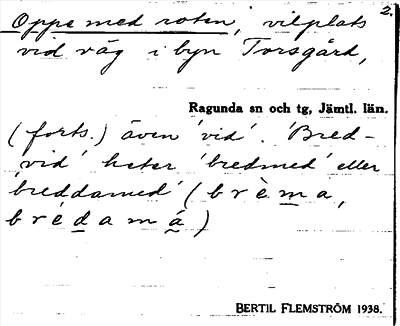 2.
Oppe med roten, vilplats
vid väg i byn Torsgård,
Ragunda sn och tg, Jämtl. län.
(forts.) även 'vid'. 'Bred-
vid' heter 'bredmed' eller
'breddamed' (b r è m a,
b r é d a m á)
BERTIL FLEMSTRÖM 1938.